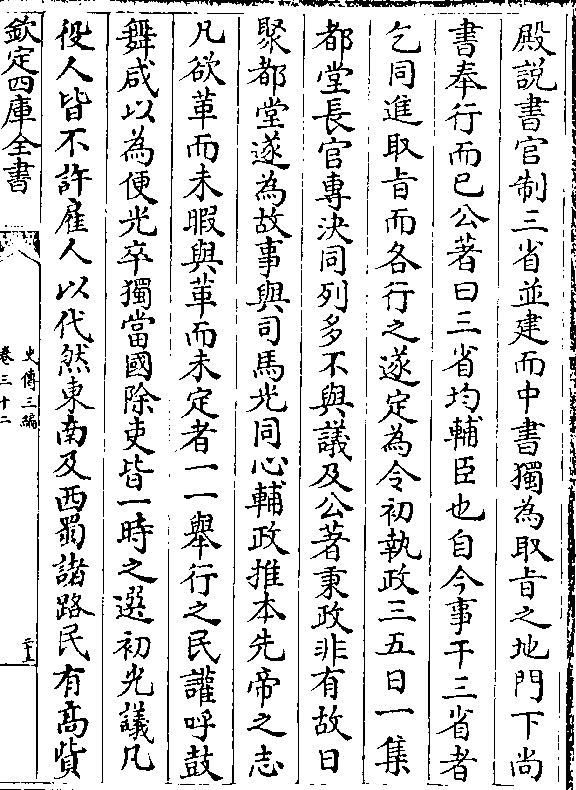 殿說書官制三省並建而中書獨為取旨之地門下尚
書奉行而已公著曰三省均輔臣也自今事干三省者
乞同進取旨而各行之遂定為令初執政三五日一集
都堂長官專決同列多不與議及公著秉政非有故日
聚都堂遂為故事與司馬光同心輔政推本先帝之志
凡欲革而未暇與革而未定者一一舉行之民讙呼鼓
舞咸以為便光卒獨當國除吏皆一時之選初光議凡
役人皆不許雇人以代然東南及西蜀諸路民有高貲
欽定四庫全書
史傳三編
卷三十二
二十五